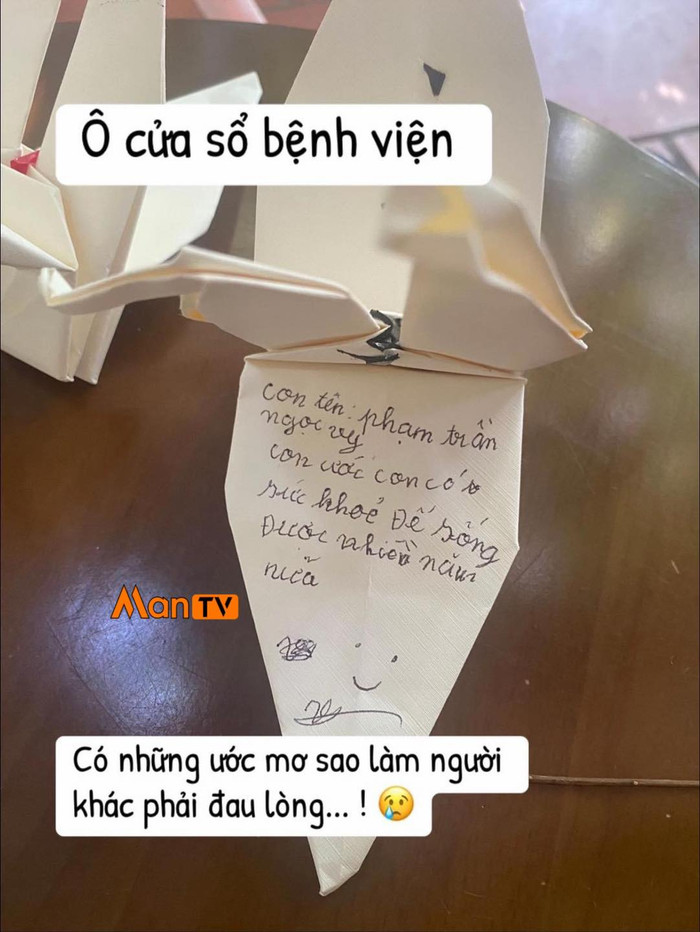 Ô cửa sổ bệnh viện
con tên: phạm trần
ngọc vy
con ước con có
sức khoẻ Để sống
Được nhiều năm
nữa
ManTV
Có những ước mơ sao làm người
khác phải đau lòng... ! 😢